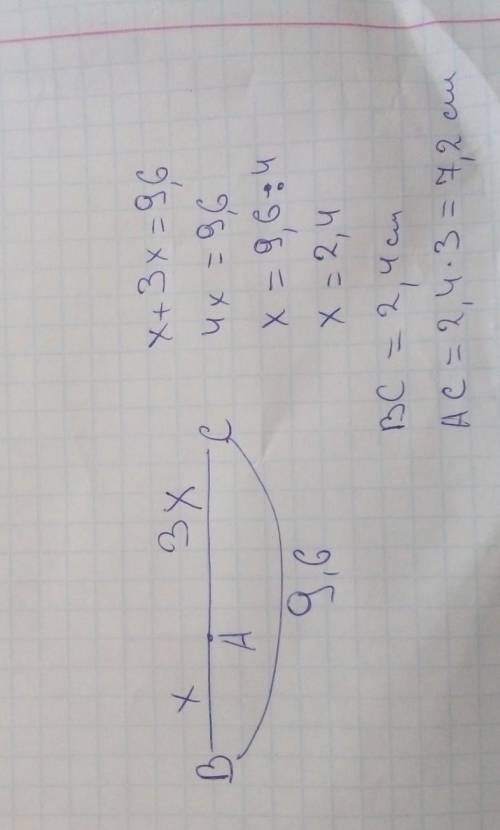 x 3x
B A C
9,6
x+3x=9,6
4x=9,6
x=9,6÷4
x=2,4
BC=2,4см
AC=2,4·3=7,2см